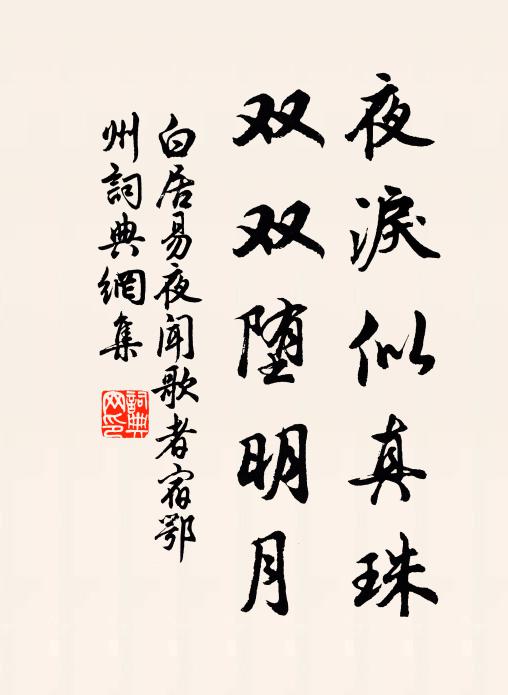 夜淚似真珠
双双堕明月
白居易夜闻歌者宿鄂
州詞典網集
詞典
网印